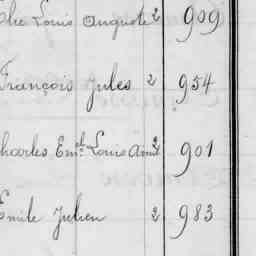 Louis Auguste 2 909
François Jules 2 954
Charles Em.el Louis 2 901
Emile Julien 2 983